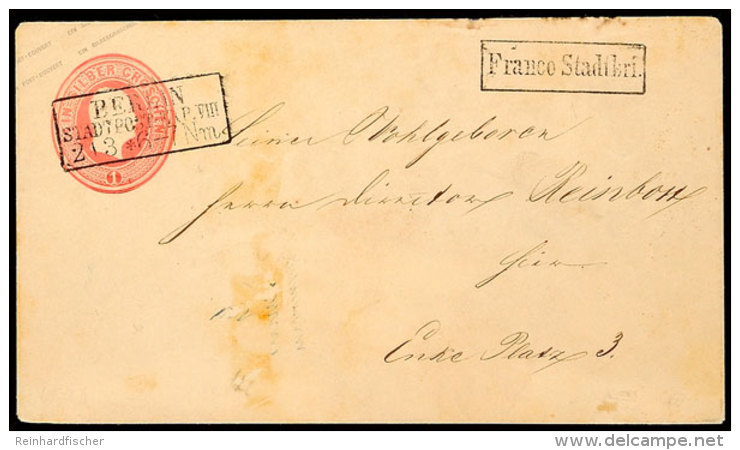 EIN SILBER GROSCHEN
1
BERLIN
STADTPOST-EXP. VIII
2 3 * 5-6 Nm
Franco Stadtbri.
Seiner Wohlgeboren
Herrn Director Reinbott
hier
Enke Platz 3.
Reinhardfischer
www.delcampe.net